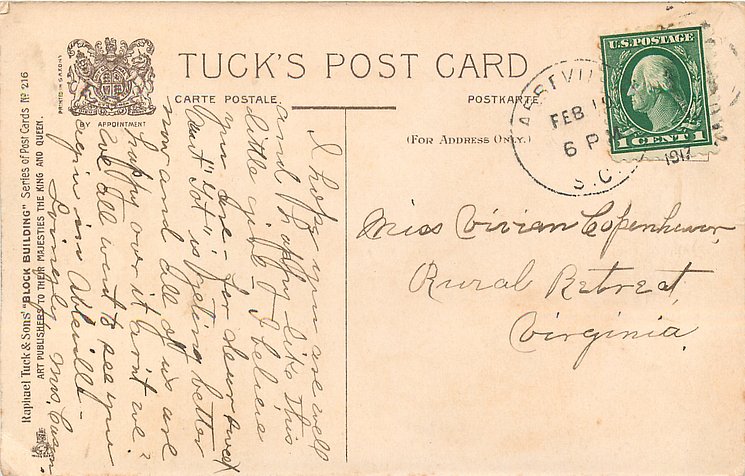 TUCK'S POST CARD
CARTE POSTALE.
POSTKARTE.
(FOR ADDRESS ONLY.)
BY APPOINTMENT
PRINTED IN SAXONY
Raphael Tuck & Sons' "BLOCK BUILDING" Series of Post Cards No 216
ART PUBLISHERS TO THEIR MAJESTIES THE KING AND QUEEN.
U.S. POSTAGE
1 CENT 1
FEB
6 P
S.C.
1917
Miss Vivian Copenhaver,
Rural Retreat,
Virginia.
I hope you are well
and happy like this
little girl & I believe
you are - for dear sweet
Aunt "Lot" is getting better
now and all of us are
happy over it arn't we?
We all want to see you
again in Abbeville -
Lovingly, Mrs.